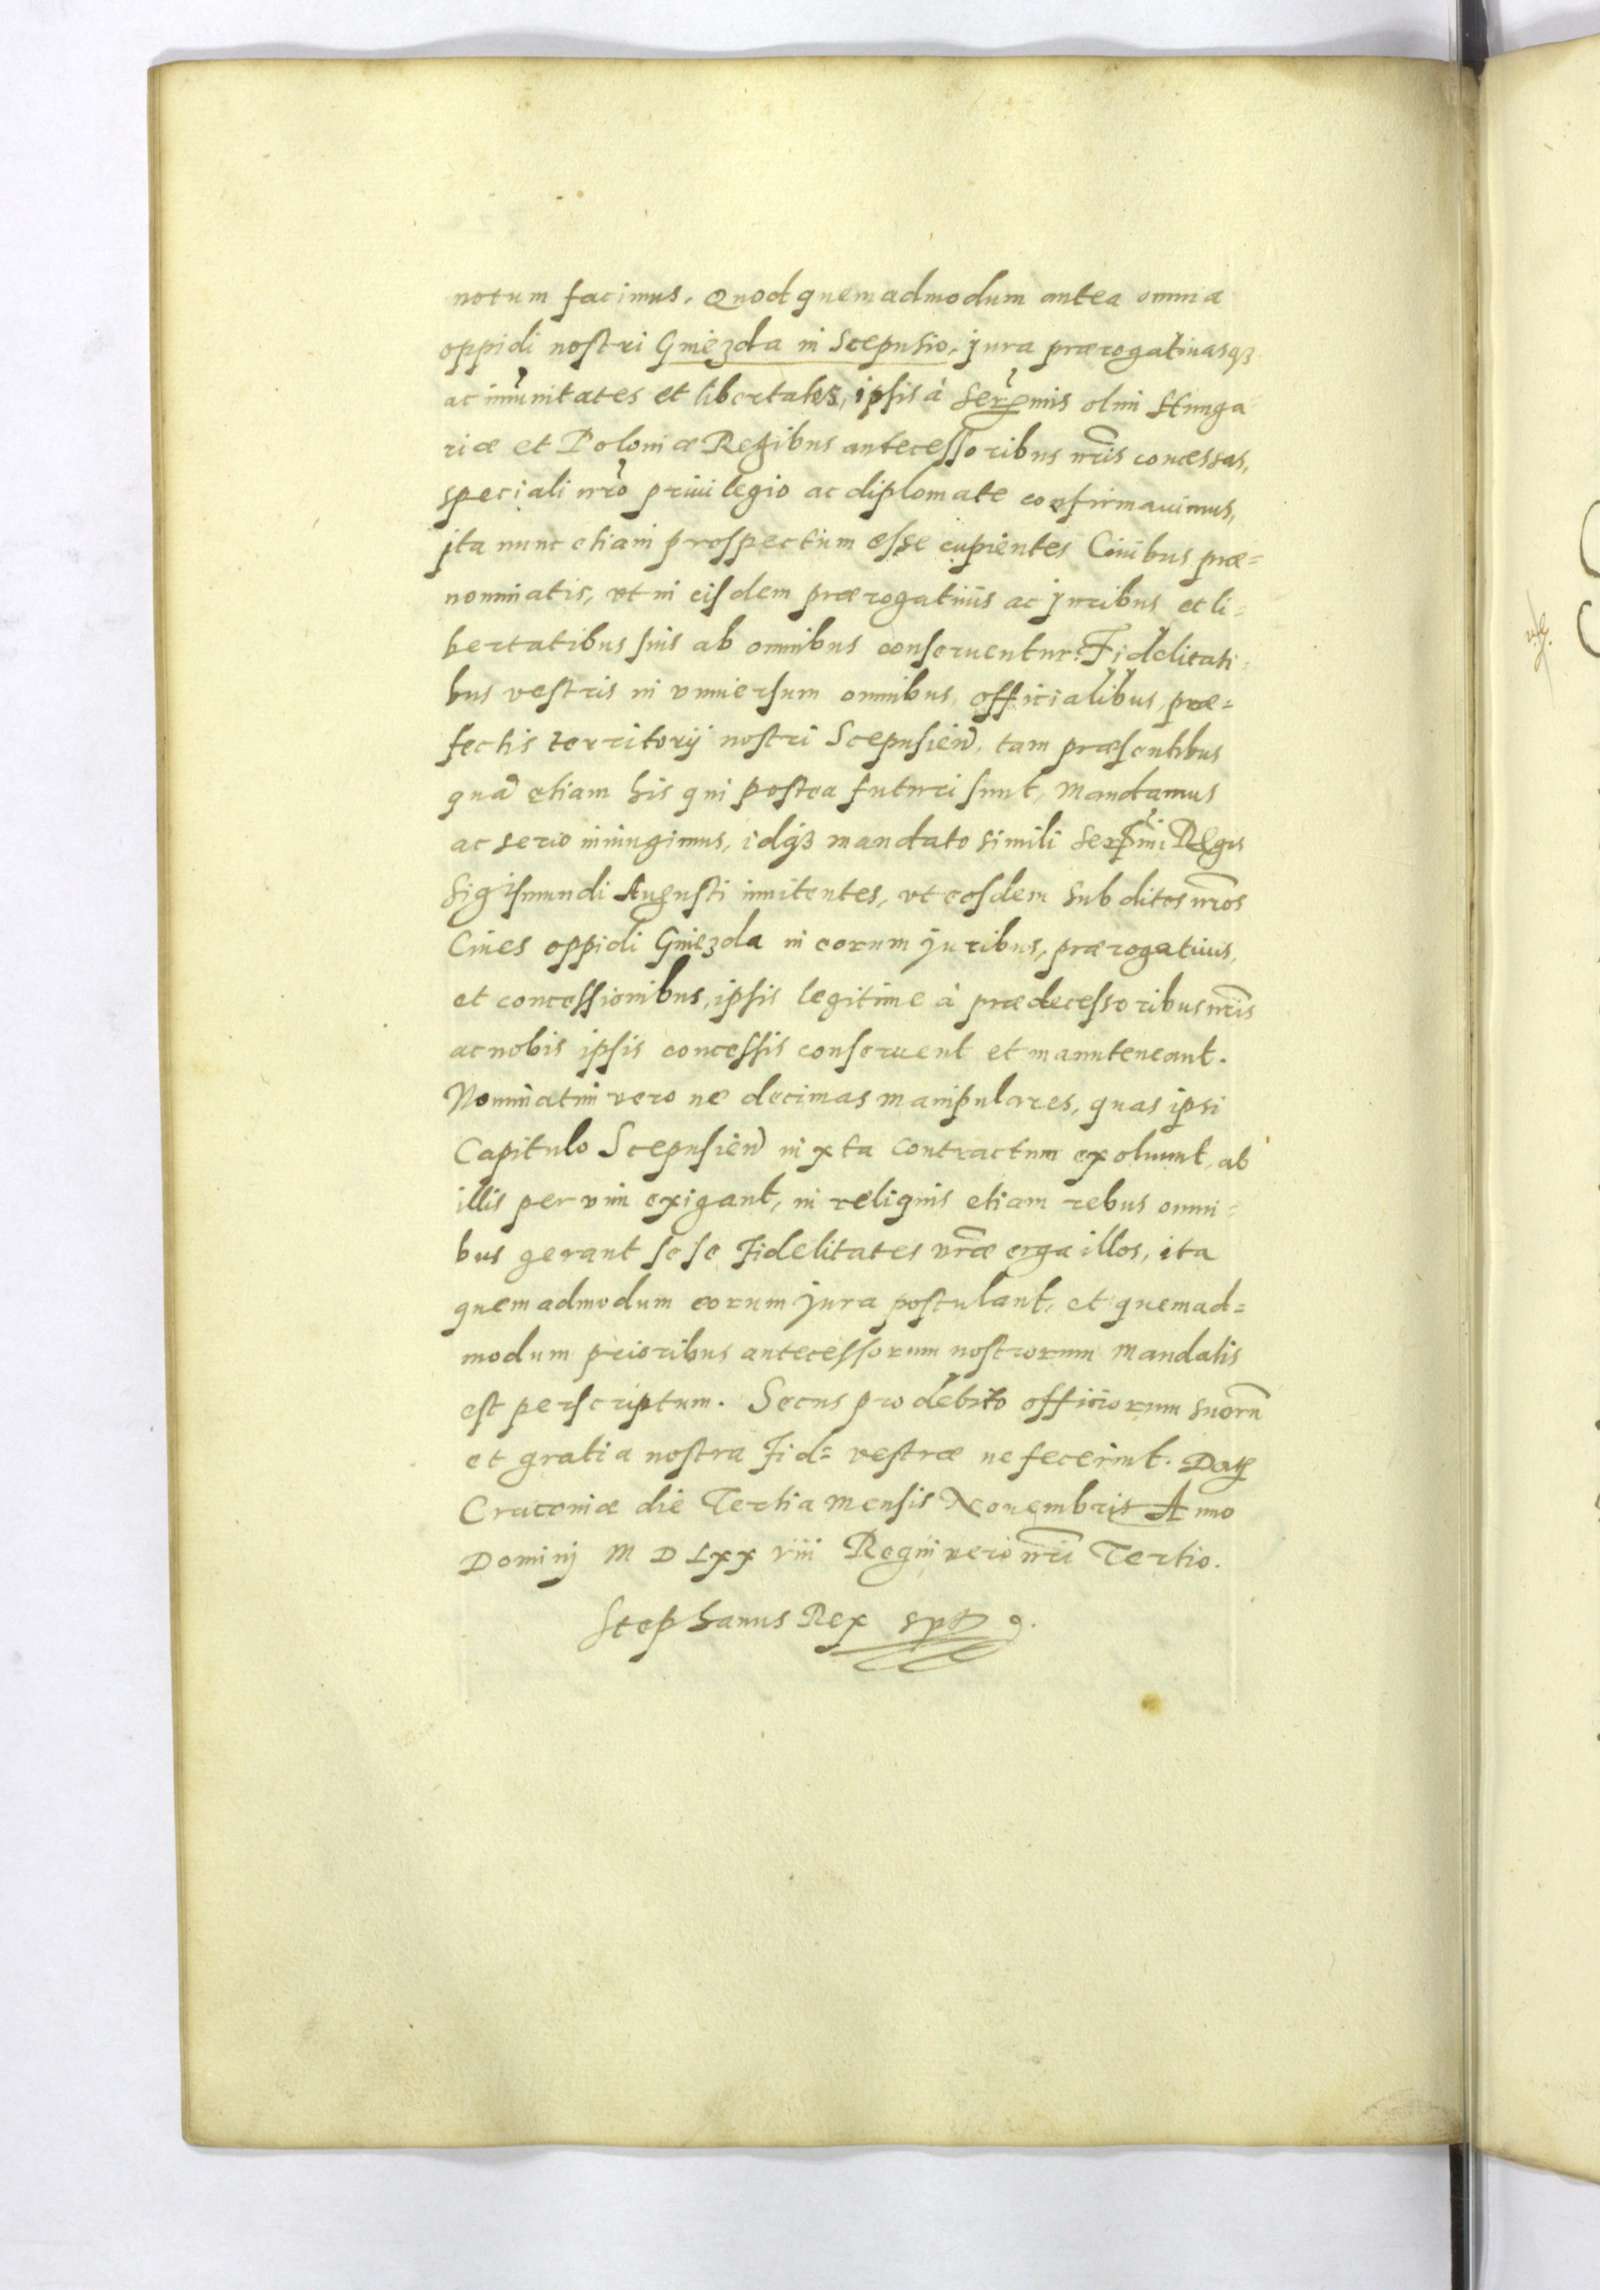 notum facimus. Quod quemadmodum antea omnia
oppidi nostri Gniezda in Scepusio, jura prærogatiuasq3
ac imunitates et libertates, ipsis à Sermis olim Hunga
riæ et Poloniæ Regibus antecessoribus nris concessas,
speciali nro priuilegio ac diplomate confirmauimus,
ita nunc etiam prospectum esse cupientes Ciuibus præ=
nominatis, vt in eisdem prærogatiuis ac juribus et li=
bertatibus suis ab omnibus conseruentur: Fidelitati=
bus vestris in vniuersum omnibus officialibus, præ=
fectis territorij nostri Scepusien, tam præsentibus
qua etiam his qui postea futuri sunt, Mandamus
ac serio iniungimus, idq3 mandato simili Sermi Regis
Sigismundi Augusti innitentes, vt eosdem subditos nros
Ciues oppidi Gniezda in eorum juribus, prærogatiuis,
et concessionibus, ipsis legitime à prædecessoribus nris
ac nobis ipsis concessis conseruent et manuteneant.
Nominatim vero ne decimas manipulares, quas ipsi
Capitulo Scepusien iuxta contractum exoluunt, ab
illis per vim exigant, in reliquis etiam rebus omni=
bus gerant sese Fidelitates vræ erga illos, ita
quemadmodum eorum jura postulant, et quemad=
modum prioribus antecessorum nostrorum mandatis
est perscriptum. Secus pro debito officiorum suoru
et gratia nostra Fid= vestræ ne fecerint. Dat
Cracouiæ die Tertia mensis Nouembris Anno
Dominj M D Lxx viii Regni vero nri Tertio.
Stephanus Rex